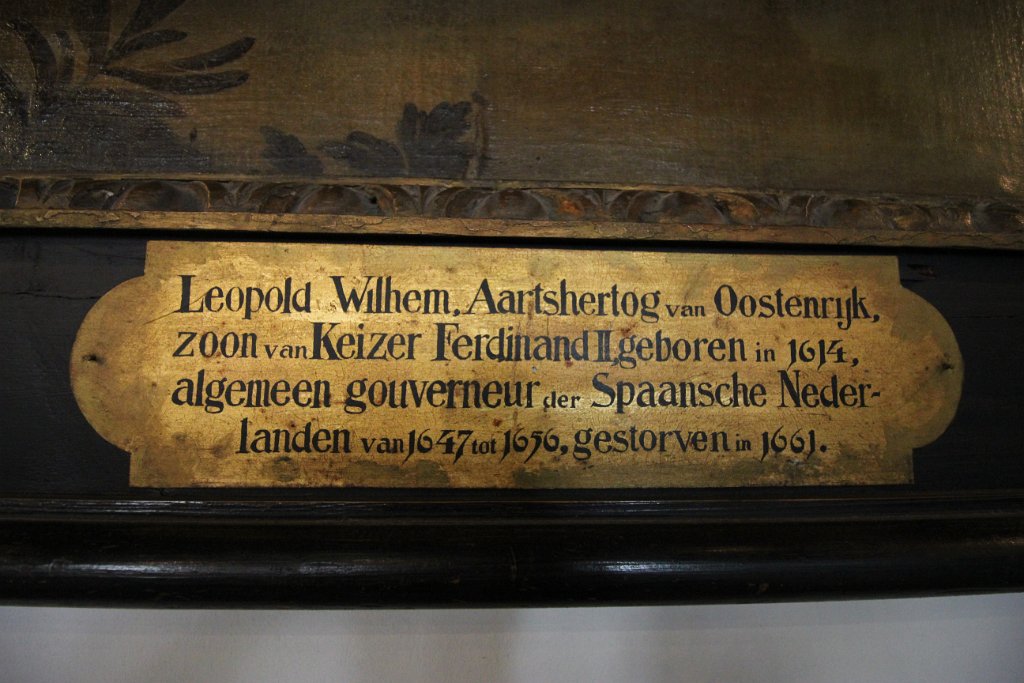 Leopold Wilhem, Aartshertog van Oostenrijk,
zoon van Keizer Ferdinand II, geboren in 1614,
algemeen gouverneur der Spaansche Neder-
landen van 1647 tot 1656, gestorven in 1661.